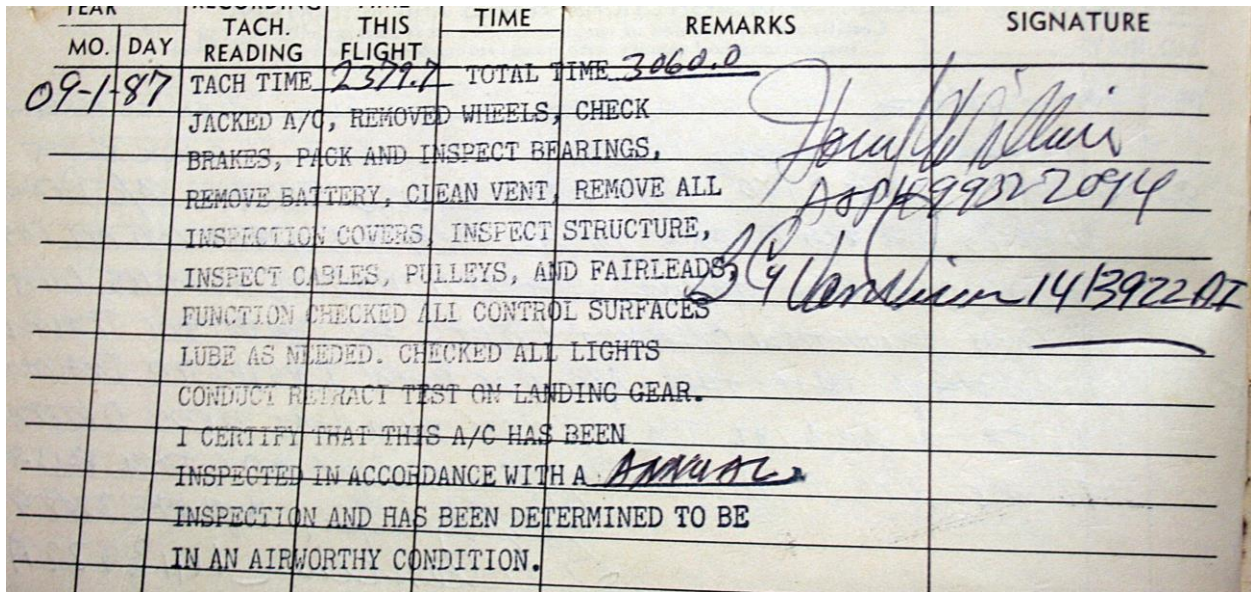 YEAR RECORDING TIME
TACH. THIS TIME REMARKS SIGNATURE
MO. DAY READING FLIGHT
09-1-87 TACH TIME 2379.7 TOTAL TIME 3060.0
JACKED A/C, REMOVED WHEELS, CHECK
BRAKES, PACK AND INSPECT BEARINGS,
REMOVE BATTERY, CLEAN VENT, REMOVE ALL
INSPECTION COVERS, INSPECT STRUCTURE,
INSPECT CABLES, PULLEYS, AND FAIRLEADS, 1413922
FUNCTION CHECKED ALL CONTROL SURFACES
LUBE AS NEEDED. CHECKED ALL LIGHTS
CONDUCT RETRACT TEST ON LANDING GEAR.
I CERTIFY THAT THIS A/C HAS BEEN
INSPECTED IN ACCORDANCE WITH A ANNUAL
INSPECTION AND HAS BEEN DETERMINED TO BE
IN AN AIRWORTHY CONDITION.